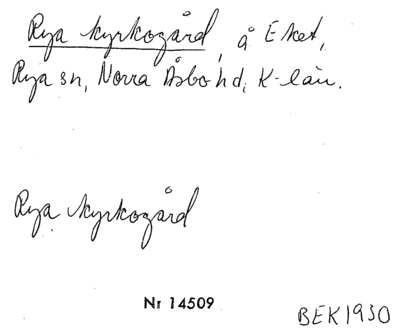 Rya kyrkogård, å Eket,
Rya sn, Norra Åsbo hd, K-län.
Rya kyrkogård
Nr 14509
BEK1930